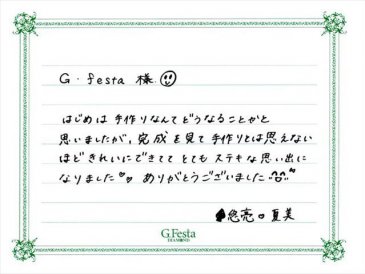 G・festa 様
はじめは手作りなんてどうなることかと
思いましたが、完成を見て手作りとは思えない
ほどきれいにできてて とてもステキな思い出に
なりました♡ ありがとうございました
悠亮♡夏美
G.Festa
DIAMOND